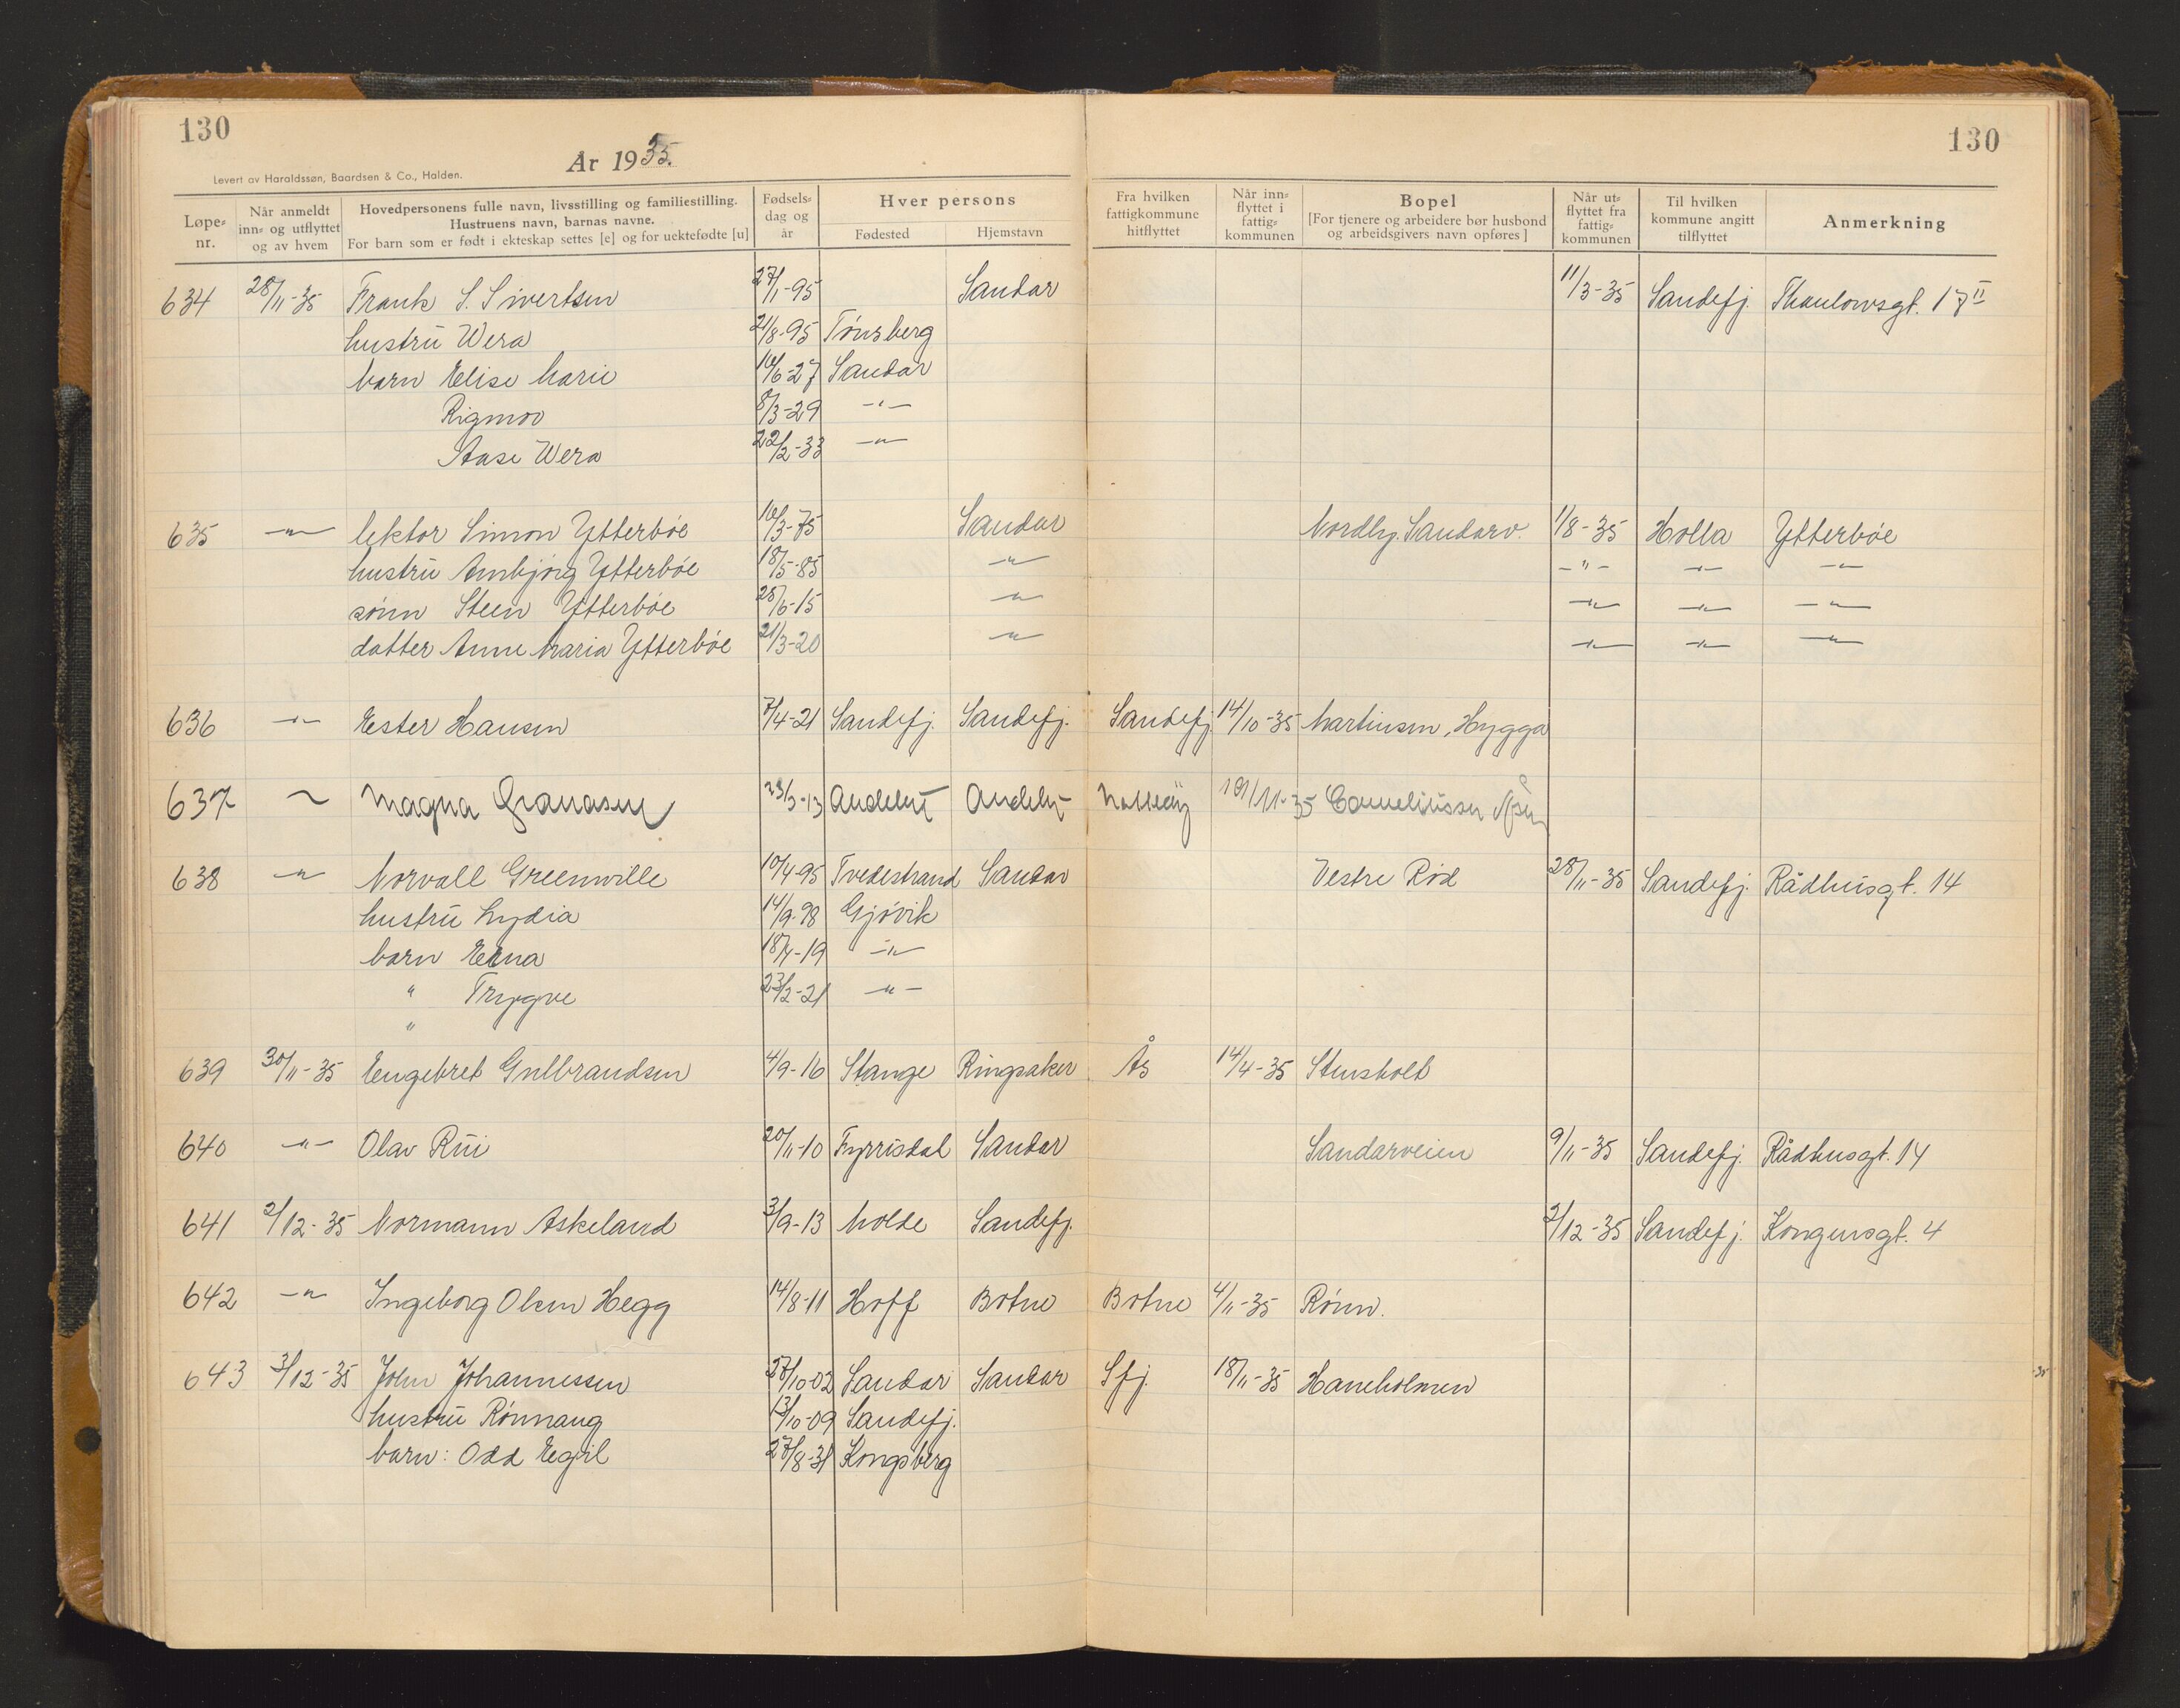 130
År 1935.
130
Levert av Haraldssøn, Baardsen & Co., Halden.
Løpe-nr. Når anmeldt inn- og utflyttet og av hvem Hovedpersonens fulle navn, livsstilling og familiestilling. Hustruens navn, barnas navne. For barn som er født i ekteskap settes [e] og for uektefødte [u] Fødsels-dag og år Hver persons Fødested Hjemstavn Fra hvilken fattigkommune hitflyttet Når inn-flyttet i fattig-kommunen Bopel [For tjenere og arbeidere bør husbond og arbeidsgivers navn opføres] Når ut-flyttet fra fattig-kommunen Til hvilken kommune angitt tilflyttet Anmerkning
634 28/11-35 Frank S. Sivertsen 27/1-95 Sandar 11/3-35 Sandefj. Thaulowsgt. 17 II
hustru Wera 21/8-95 Tønsberg
barn Elise Marie 16/6-27 Sandar
Rigmor 8/3-29 -"-
Aase Wera 22/2-33 -"-
635 -"- lektor Simon Ytterbøe 16/3-75 Sandar Nordby. Sandarv. 1/8-35 Holla Ytterbøe
hustru Ambjørg Ytterbøe 18/5-85 -"- -"- -"- -"-
sønn Steen Ytterbøe 28/6-15 -"- -"- -"- -"-
datter Anne Maria Ytterbøe 21/3-20 -"- -"- -"- -"-
636 -"- Ester Hansen 7/4-21 Sandefj. Sandefj. Sandefj. 14/10-35 Martinsen, Hygga
637 Magna Andebu Andebu 19/11-35
638 -"- Norvall Greenwille 10/4-95 Tvedestrand Sandar Vestre Rød 28/11-35 Sandefj. Rådhusgt. 14
hustru Lydia 14/9-98 Gjøvik
barn Erna -"-
" Trygve 23/2-21 -"-
"
639 30/11-35 Engebret Gulbrandsen 4/9-16 Stange Ringsaker Ås 14/4-35 Stensholt
640 -"- Olav Rui 20/11-10 Fyrrisdal Sandar Sandarveien 9/11-35 Sandefj. Rådhusgt. 14
641 2/12-35 Normann Askeland 3/9-13 Molde Sandefj. 2/12-35 Sandefj. Kongensgt. 4
642 -"- Ingeborg Olsen Hegg 14/8-11 Hoff Botne Botne 4/11-35 Rønn.
643 3/12-35 John Johannessen 27/10-02 Sandar Sandar Sfj. 18/11-35 Haneholmen
hustru Rønnaug 13/10-09 Sandefj.
barn: Odd Egil 27/8-31 Kongsberg